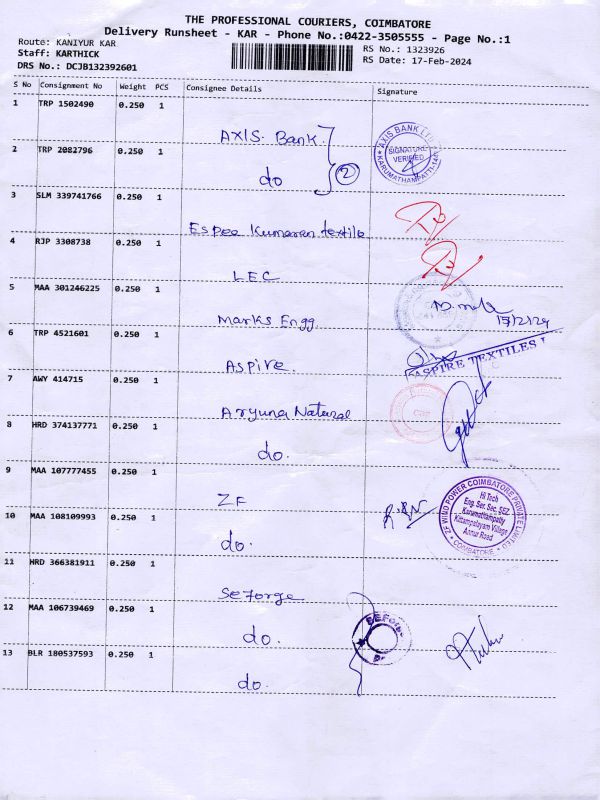 THE PROFESSIONAL COURIERS, COIMBATORE
Delivery Runsheet - KAR - Phone No.:0422-3505555 - Page No.:1
Route: KANIYUR KAR
Staff: KARTHICK
DRS No.: DCJB132392601
RS No.: 1323926
RS Date: 17-Feb-2024
S No Consignment No Weight PCS Consignee Details Signature
1 TRP 1502490 0.250 1
AXIS Bank
AXIS BANK LTD
SIGNATURE VERIFIED
KARUMATHAMPATTI
2 TRP 2082796 0.250 1
do 2
3 SLM 339741766 0.250 1
Espee Kumaran textile
4 RJP 3308738 0.250 1
LEC
5 MAA 301246225 0.250 1
Marks Engg.
6 TRP 4521601 0.250 1
Aspire.
ASPIRE TEXTILES
7 AWY 414715 0.250 1
Aryuna Natural
8 HRD 374137771 0.250 1
do.
9 MAA 107777455 0.250 1
ZF
ZF WIND POWER COIMBATORE PRIVATE LIMITED
Hi Tech
Eng. Ser. Sec, SEZ
Karumattampatty
Kittampalayam Village
Annur Road
COIMBATORE
10 MAA 108109993 0.250 1
do.
11 HRD 366381911 0.250 1
Seforge
12 MAA 106739469 0.250 1
do.
13 BLR 180537593 0.250 1
do.